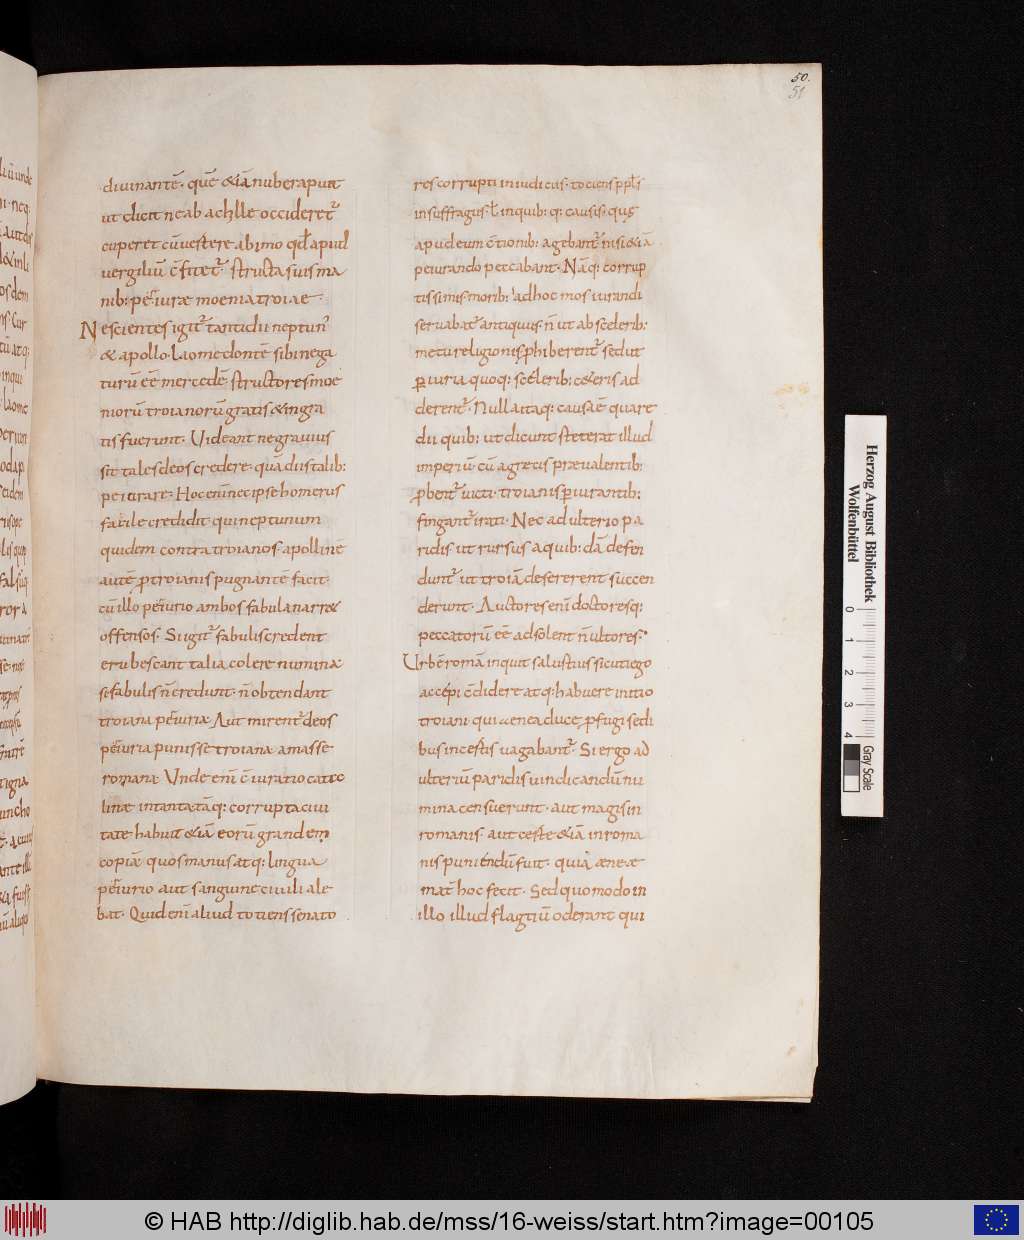 50.
51
diuinantē. quē &iā nube rapuit
ut dicit ne ab achille occideret᷑
cuperet cū uertere ab imo qđ apud
uergiliū c̄fit&᷑. structa suis ma
nib: periuræ moenia troiae.
Nescientes igit᷑ tanti dii neptun᷒
& apollo. laomedontē sibi nega
turū eē mercedē. structores moe
niorū troianorū gratis & ingra
tis fuerunt. Uideant ne grauius
sit tales deos credere. quā diis talib:
peierare. Hoc enī nec ipse homerus
facile credidit qui neptunum
quidem contra troianos apollinē
autē ꝓ troianis pugnantē facit.
cū illo periurio ambos fabula narr&
offensos. Si igit᷑ fabulis credent
erubescant talia colere numina
si fabulis n̄ credunt. n̄ obtendant
troiana periuria. Aut mirent᷑ deos
periuria punisse troiana amasse
romana. Unde enī c̄iuratio cateo
linæ in tanta tāq: corrupta ciui
tate habuit &iā eorū grandem
copiā quos manus atq: lingua
periurio aut sanguine ciuili ale
bat. Quid enī aliud totiens senato
res corrupti in iudiciis. totiens ppl's
in suffragiis. ł in quib: q: causis. quę
apud eum c̄tionib: agebant᷑ nisi &iā
peiurando peccabant. Nāq: corrup
tissimis morib: ad hoc mos iurandi
seruabat᷑ antiquus. n̄ ut ab scelerib:
metu religionis ꝓhiberent᷑ sed ut
ꝑiuria quoq: scelerib: ceteris ad
derent᷑. Nulla itaq: causa ē quare
dii quib: ut dicunt steterat illud
imperiū. cū a grecis præualentib:
ꝓbent᷑ uicti. troianis ꝑiurantib:
fingant᷑ irati. Nec adulterio pa
ridis ut rursus a quib: dā defen
dunt᷑ ut troiā desererent succen
derunt. Auctores enī doctoresq:
peccatorū eē adsolent n̄ ultores.
Urbē romā inquit salustius sicuti ego
accepi c̄didere atq: habuere initio
troiani qui aenea duce ꝓfugi sedi
bus incertis uagabant᷑. Si ergo ad
ulteriū paridis uindicandū nu
mina censuerunt. aut magis in
romanis aut certe &iā in roma
nis puniendū fuit. quia æneæ
mat̄ hoc fecit. Sed quomodo in
illo illud flagitiū oderant qui
Herzog August Bibliothek
Wolfenbüttel
0 1 2 3 4
Gray Scale
© HAB http://diglib.hab.de/mss/16-weiss/start.htm?image=00105